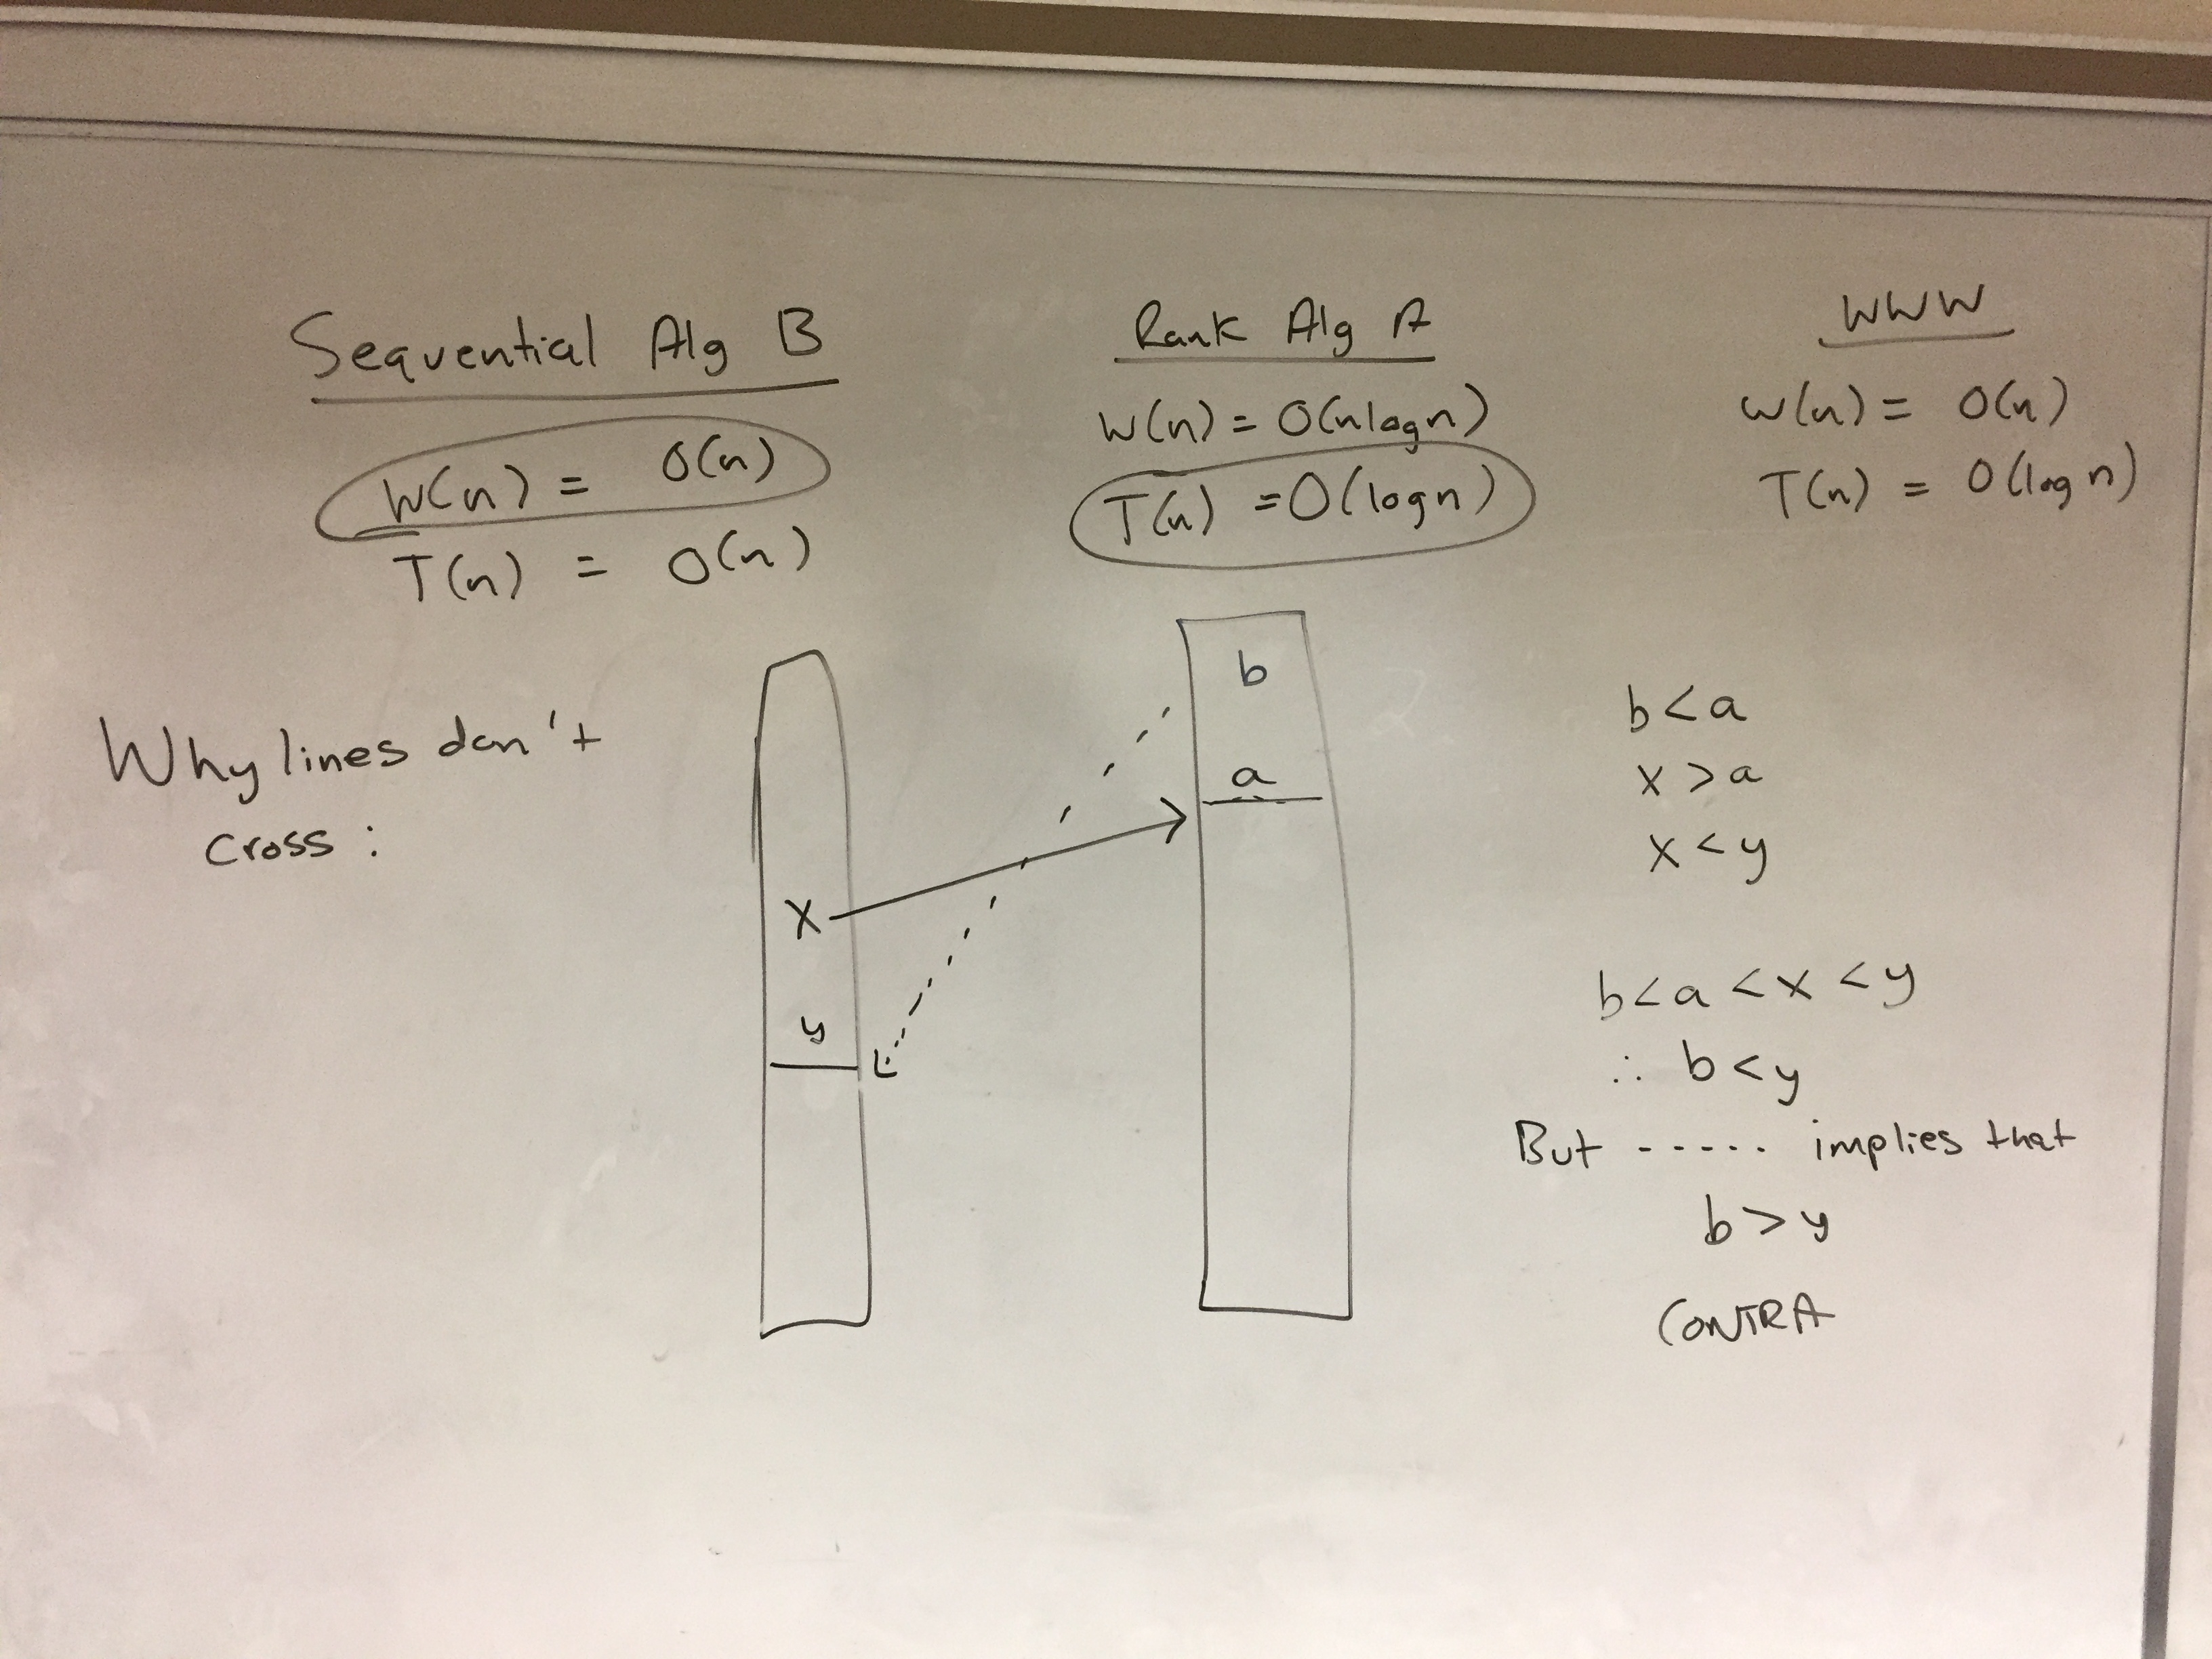 Sequential Alg B
W(n) = O(n)
T(n) = O(n)
Rank Alg A
W(n) = O(nlogn)
T(n) = O(logn)
WWW
W(n) = O(n)
T(n) = O(log n)
Why lines don't
cross :
x
y
b
a
b < a
x > a
x < y
b < a < x < y
∴ b < y
But ----- implies that
b > y
CONTRA